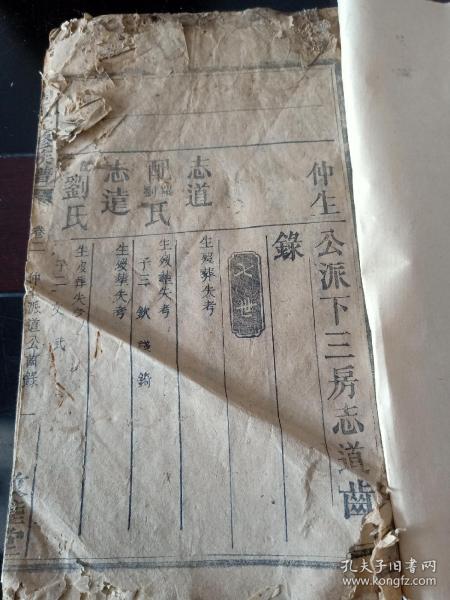 仲生公派下三房志道齒
錄
六世
志道
生歿葬失考
配劉氏
生歿葬失考
子三 欽 錡
志遠
生歿葬失考
劉氏
生歿葬失考
子二 文 武
卷二 仲生派遠公齒錄 一
孔夫子旧书网
www.kongfz.com